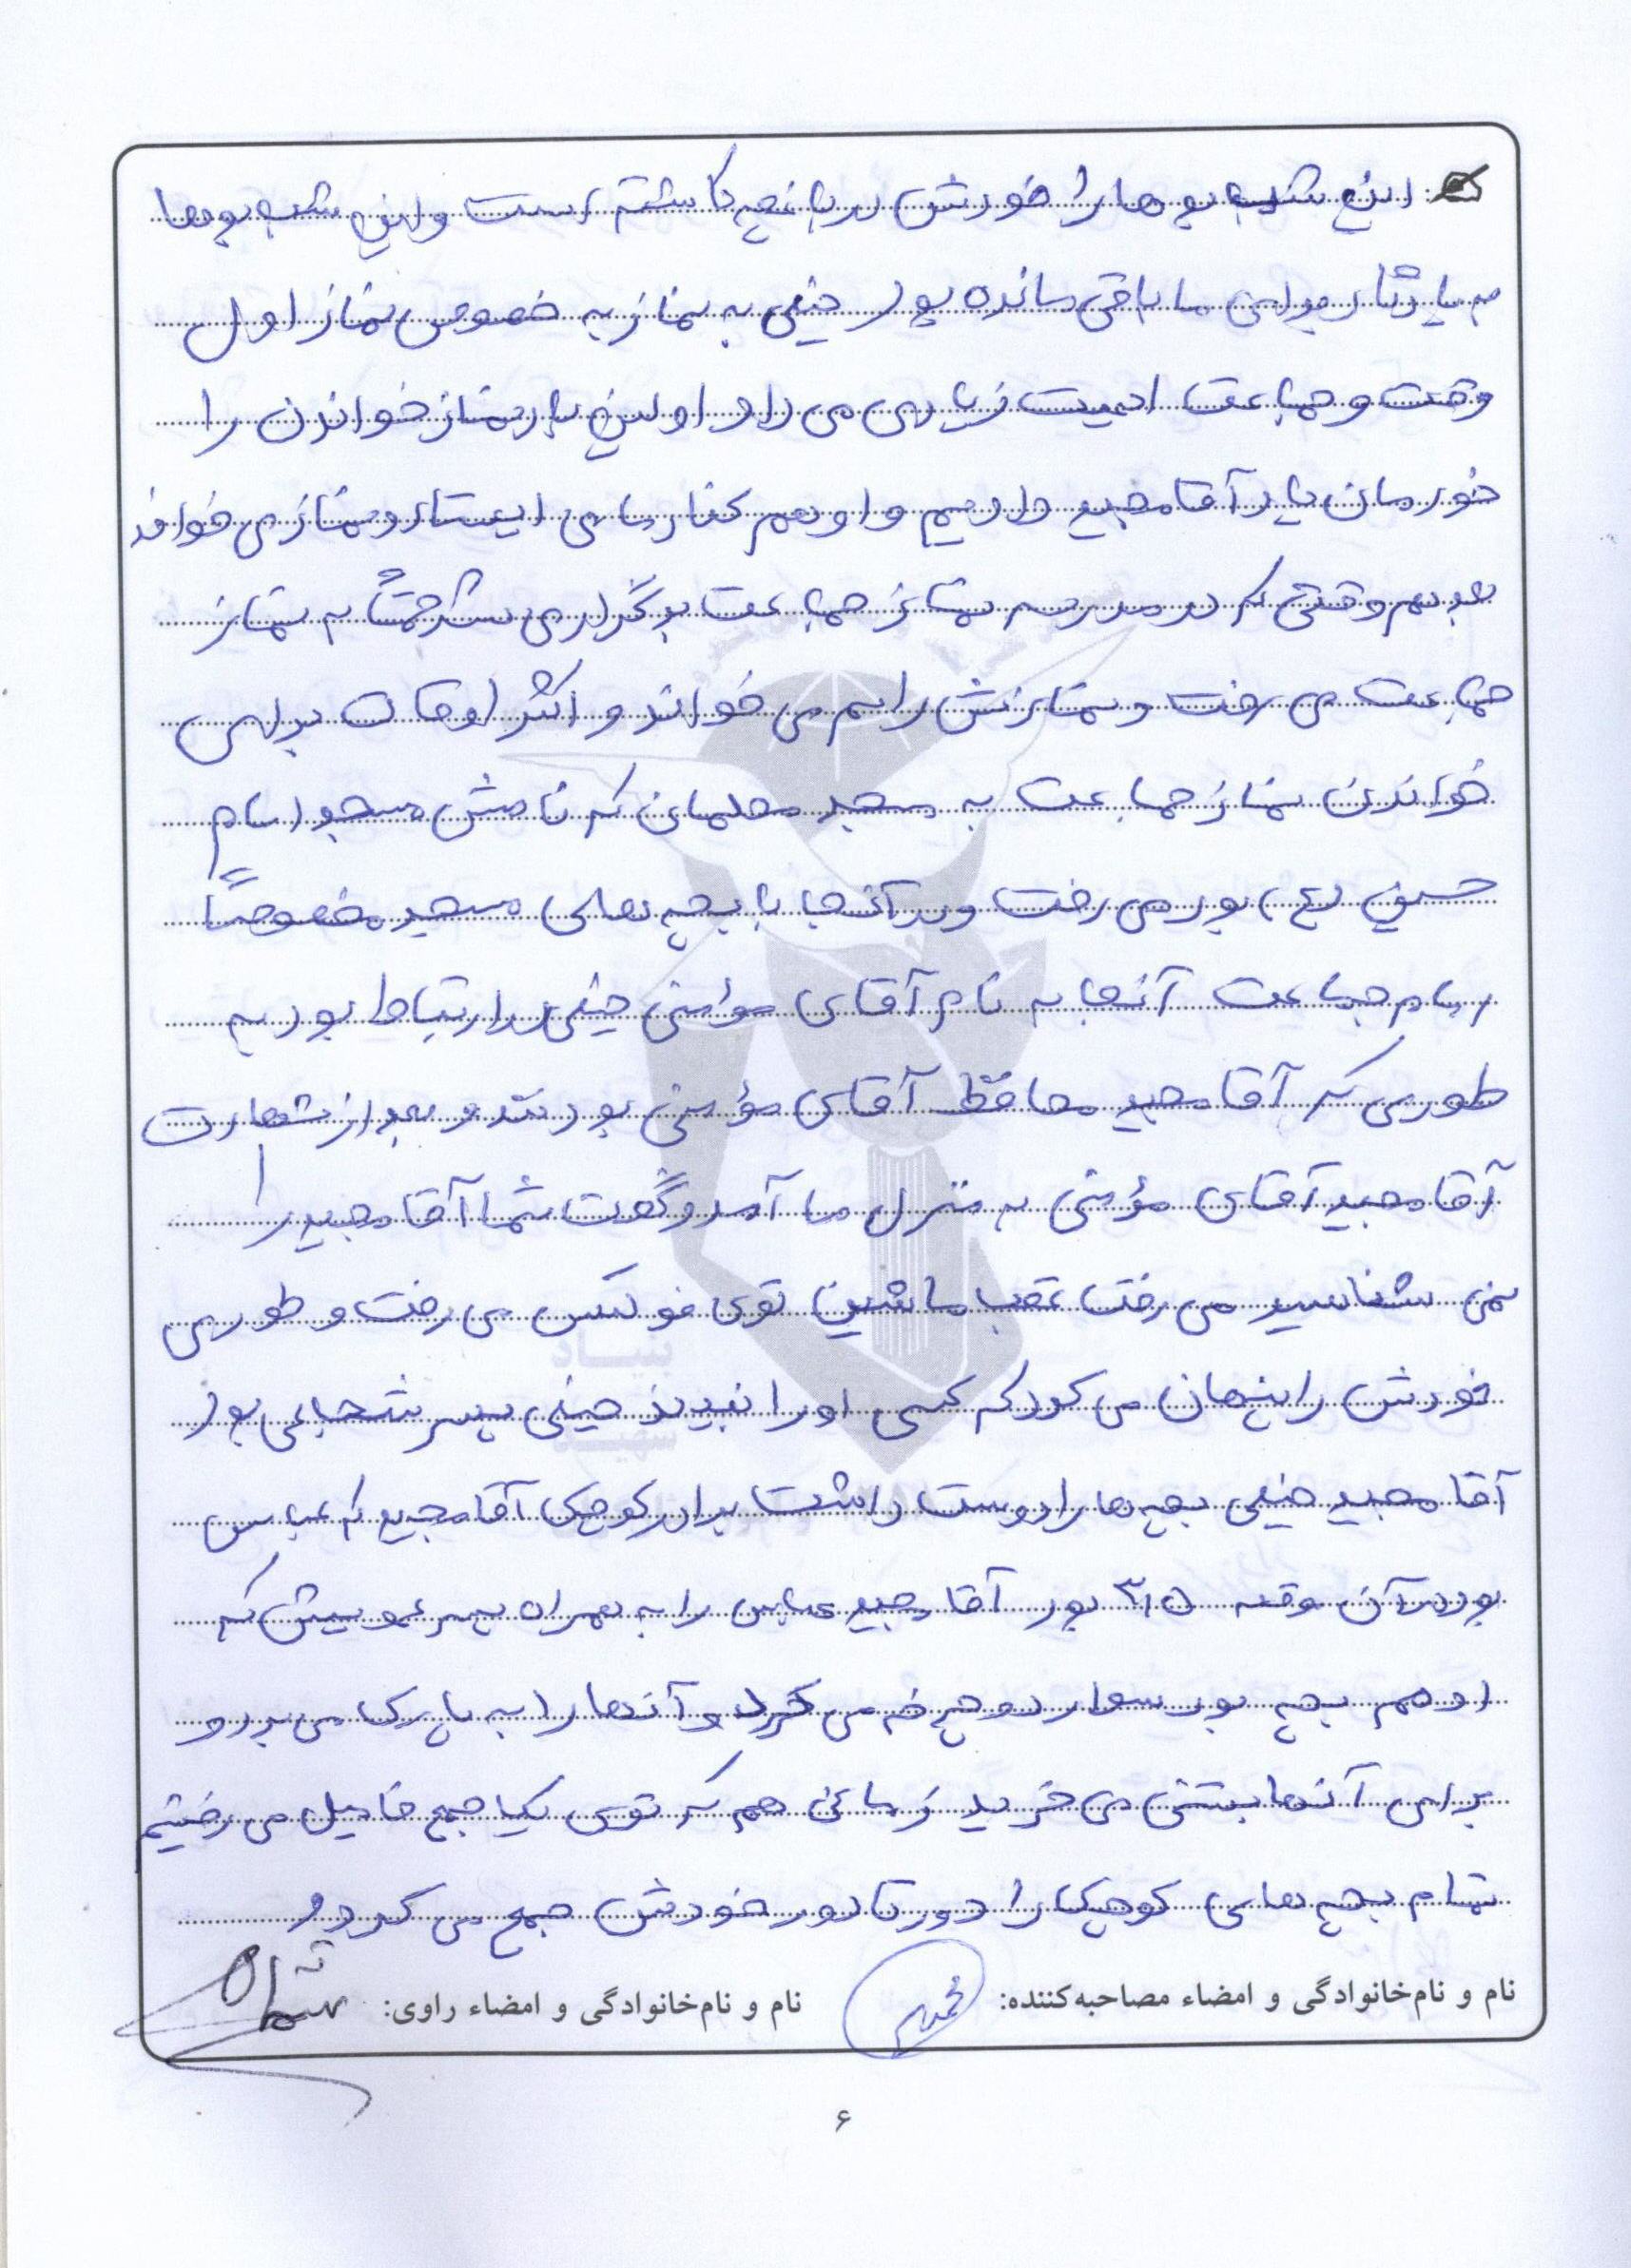 این شب بوها را خودش در باغچه کاشته است و این شب بوها
به یادگار برای ما باقی مانده بود خیلی به نماز به خصوص نماز اول
وقت و جماعت اهمیت زیادی می داد و اولین بار نماز خواندن را
خودمان یاد آقا مجید دادیم و او هم کنار ما می ایستاد و نماز می خواند
بعد هم وقتی که در مدرسه نماز جماعت برگزار می شد حتماً به نماز
جماعت می رفت و نمازش را هم می خواند و اکثر اوقات برای
خواندن نماز جماعت به مسجد محلمان که نامش مسجد امام
حسین (ع) بود می رفت و در آنجا با بچه های مسجد مخصوصاً
امام جماعت آنجا به نام آقای مؤمنی خیلی در ارتباط بود به
طوری که آقا مجید محافظ آقای مؤمنی بودند و بعد از شهادت
آقا مجید آقای مؤمنی به منزل ما آمد و گفت شما آقا مجید را
نمی شناسید می رفت عقب ماشین توی فولکس می رفت و طوری
خودش را پنهان می کرد که کسی او را نبیند خیلی پسر شجاعی بود
آقا مجید خیلی بچه ها را دوست داشت برادر کوچک آقا مجید که عباس
بود در آن موقع ۳/۵ بود آقا مجید عباس را به همراه پسر عمویش که
او هم بچه بود سوار دوچرخه می کرد و آنها را به پارک می برد و
برای آنها بستنی می خرید زمانی هم که توی یکجا جمع فامیل می رفتیم
تمام بچه های کوچک را دور تا دور خودش جمع می کرد و
نام و نام‌خانوادگی و امضاء مصاحبه‌کننده: نام و نام‌خانوادگی و امضاء راوی:
بنیاد
شهید
۶